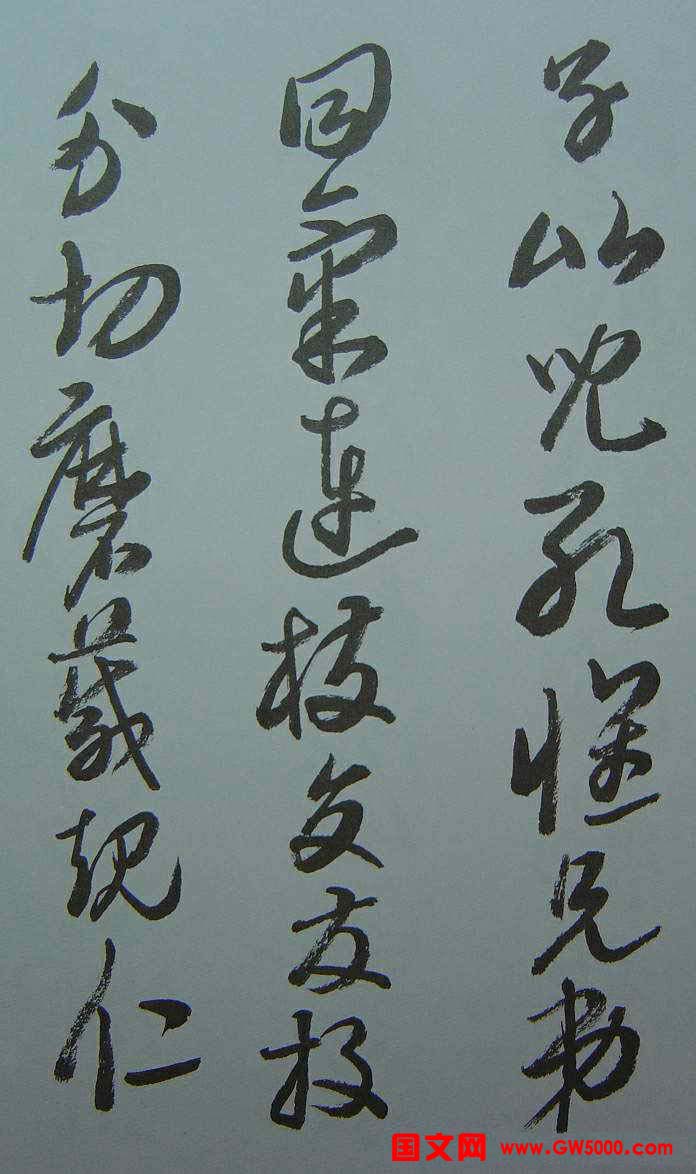 子比儿孔怀兄弟
同气连枝交友投
分切磨箴规仁
国文网 www.GW5000.com